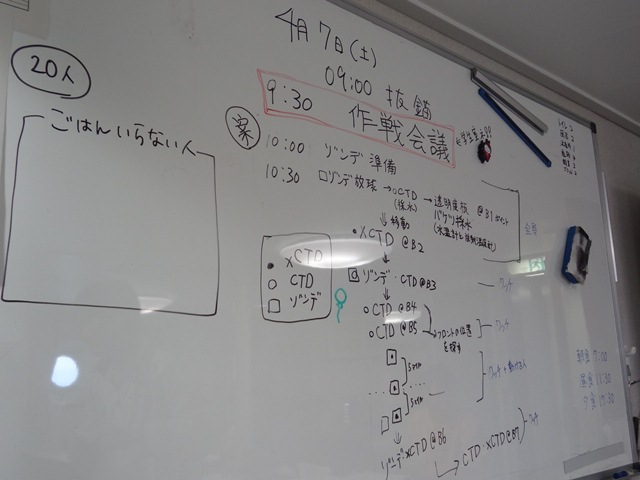 4月7日(土)
20人
09:00 抜錨
9:30 作戦会議
ごはんいらない人
案
10:00 ゾンデ準備
10:30 ロゾンデ放球→○CTD→透明度板 @B1ポイント
(採水) バケツ採水
↓移動
•XCTD @B2
• XCTD
○ CTD
□ ゾンデ
ゾンデ・CTD@B3
ワッチ
○CTD @B4
○CTD @B5
フロントの位置を探す
ワッチ
5mile
5mile
ゾンデ・XCTD@B6
CTD・XCTD@B7
ワッチ
朝食 7:00
昼食 11:30
夕食 17:30